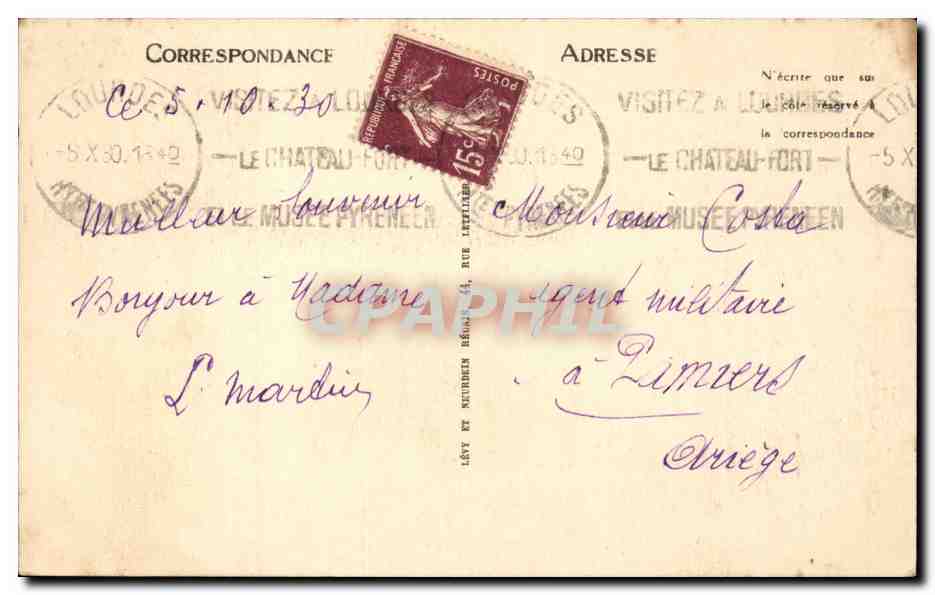 CORRESPONDANCE
ADRESSE
N'écrite que sur
le côté réservé à
la correspondance
Ce 5.10.30
LOURDES
-5 X 30. 13 40
VISITEZ A LOURDES
LE CHATEAU-FORT
LE MUSEE PYRENEEN
REPUBLIQUE FRANÇAISE
POSTES
15c
LOURDES
VISITEZ A LOURDES
LE CHATEAU-FORT
MUSEE PYRENEEN
-5 X
Meilleur Souvenir
Bonjour à Madame
L. Martin
LÉVY ET NEURDEIN RÉUNIS, 44, RUE LETELLIER
CPAPHIL
Monsieur Costa
agent militaire
à Pamiers
Ariège